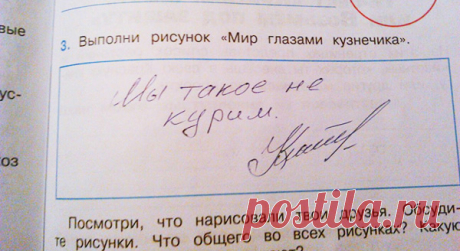 вые
3. Выполни рисунок «Мир глазами кузнечика».
Мы такое не
курим.
ус-
оз
Посмотри, что нарисовали твои друзья. Обсуди-
те рисунки. Что общего во всех рисунках? Какую
postila.ru